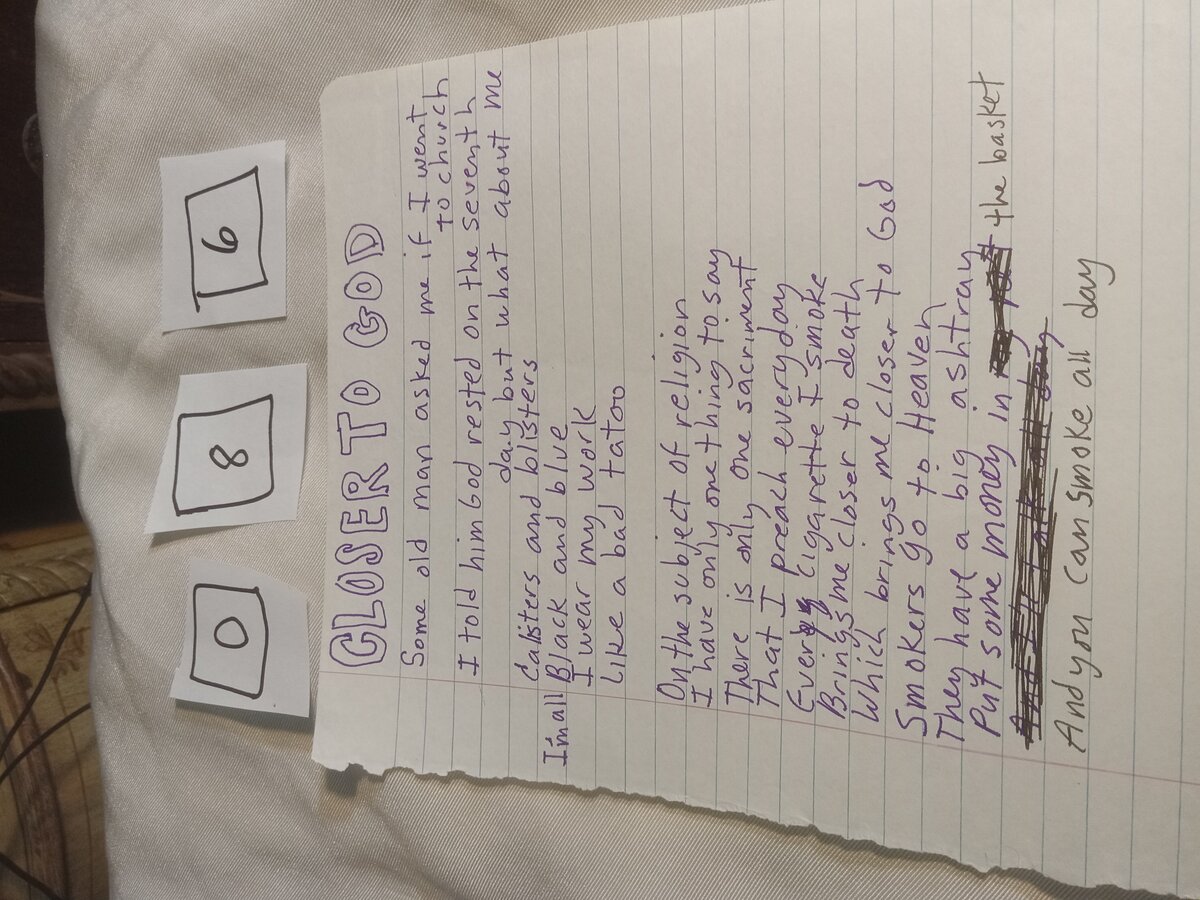 0
8
6
CLOSER TO GOD
Some old man asked me if I went
to church
I told him God rested on the seventh
day but what about me
Calisters and blisters
I'm all Black and blue
I wear my work
Like a bad tatoo
On the subject of religion
I have only one thing to say
There is only one sacriment
That I preach everyday
Every cigarette I smoke
Brings me closer to death
Which brings me closer to God
Smokers go to Heaven
They have a big ashtray
Put some money in the basket
And you can smoke all day